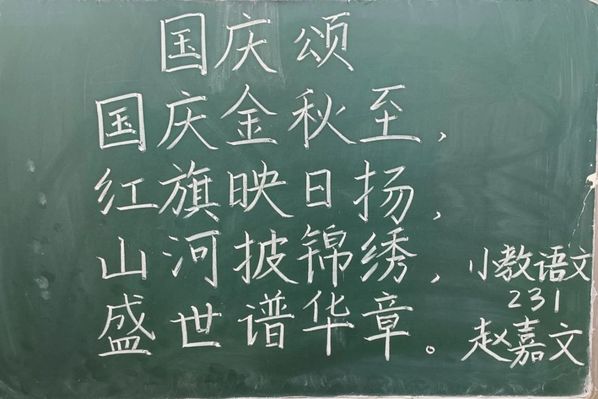 国庆颂
国庆金秋至，
红旗映日扬，
山河披锦绣，
盛世谱华章。
小教语文
231
赵嘉文